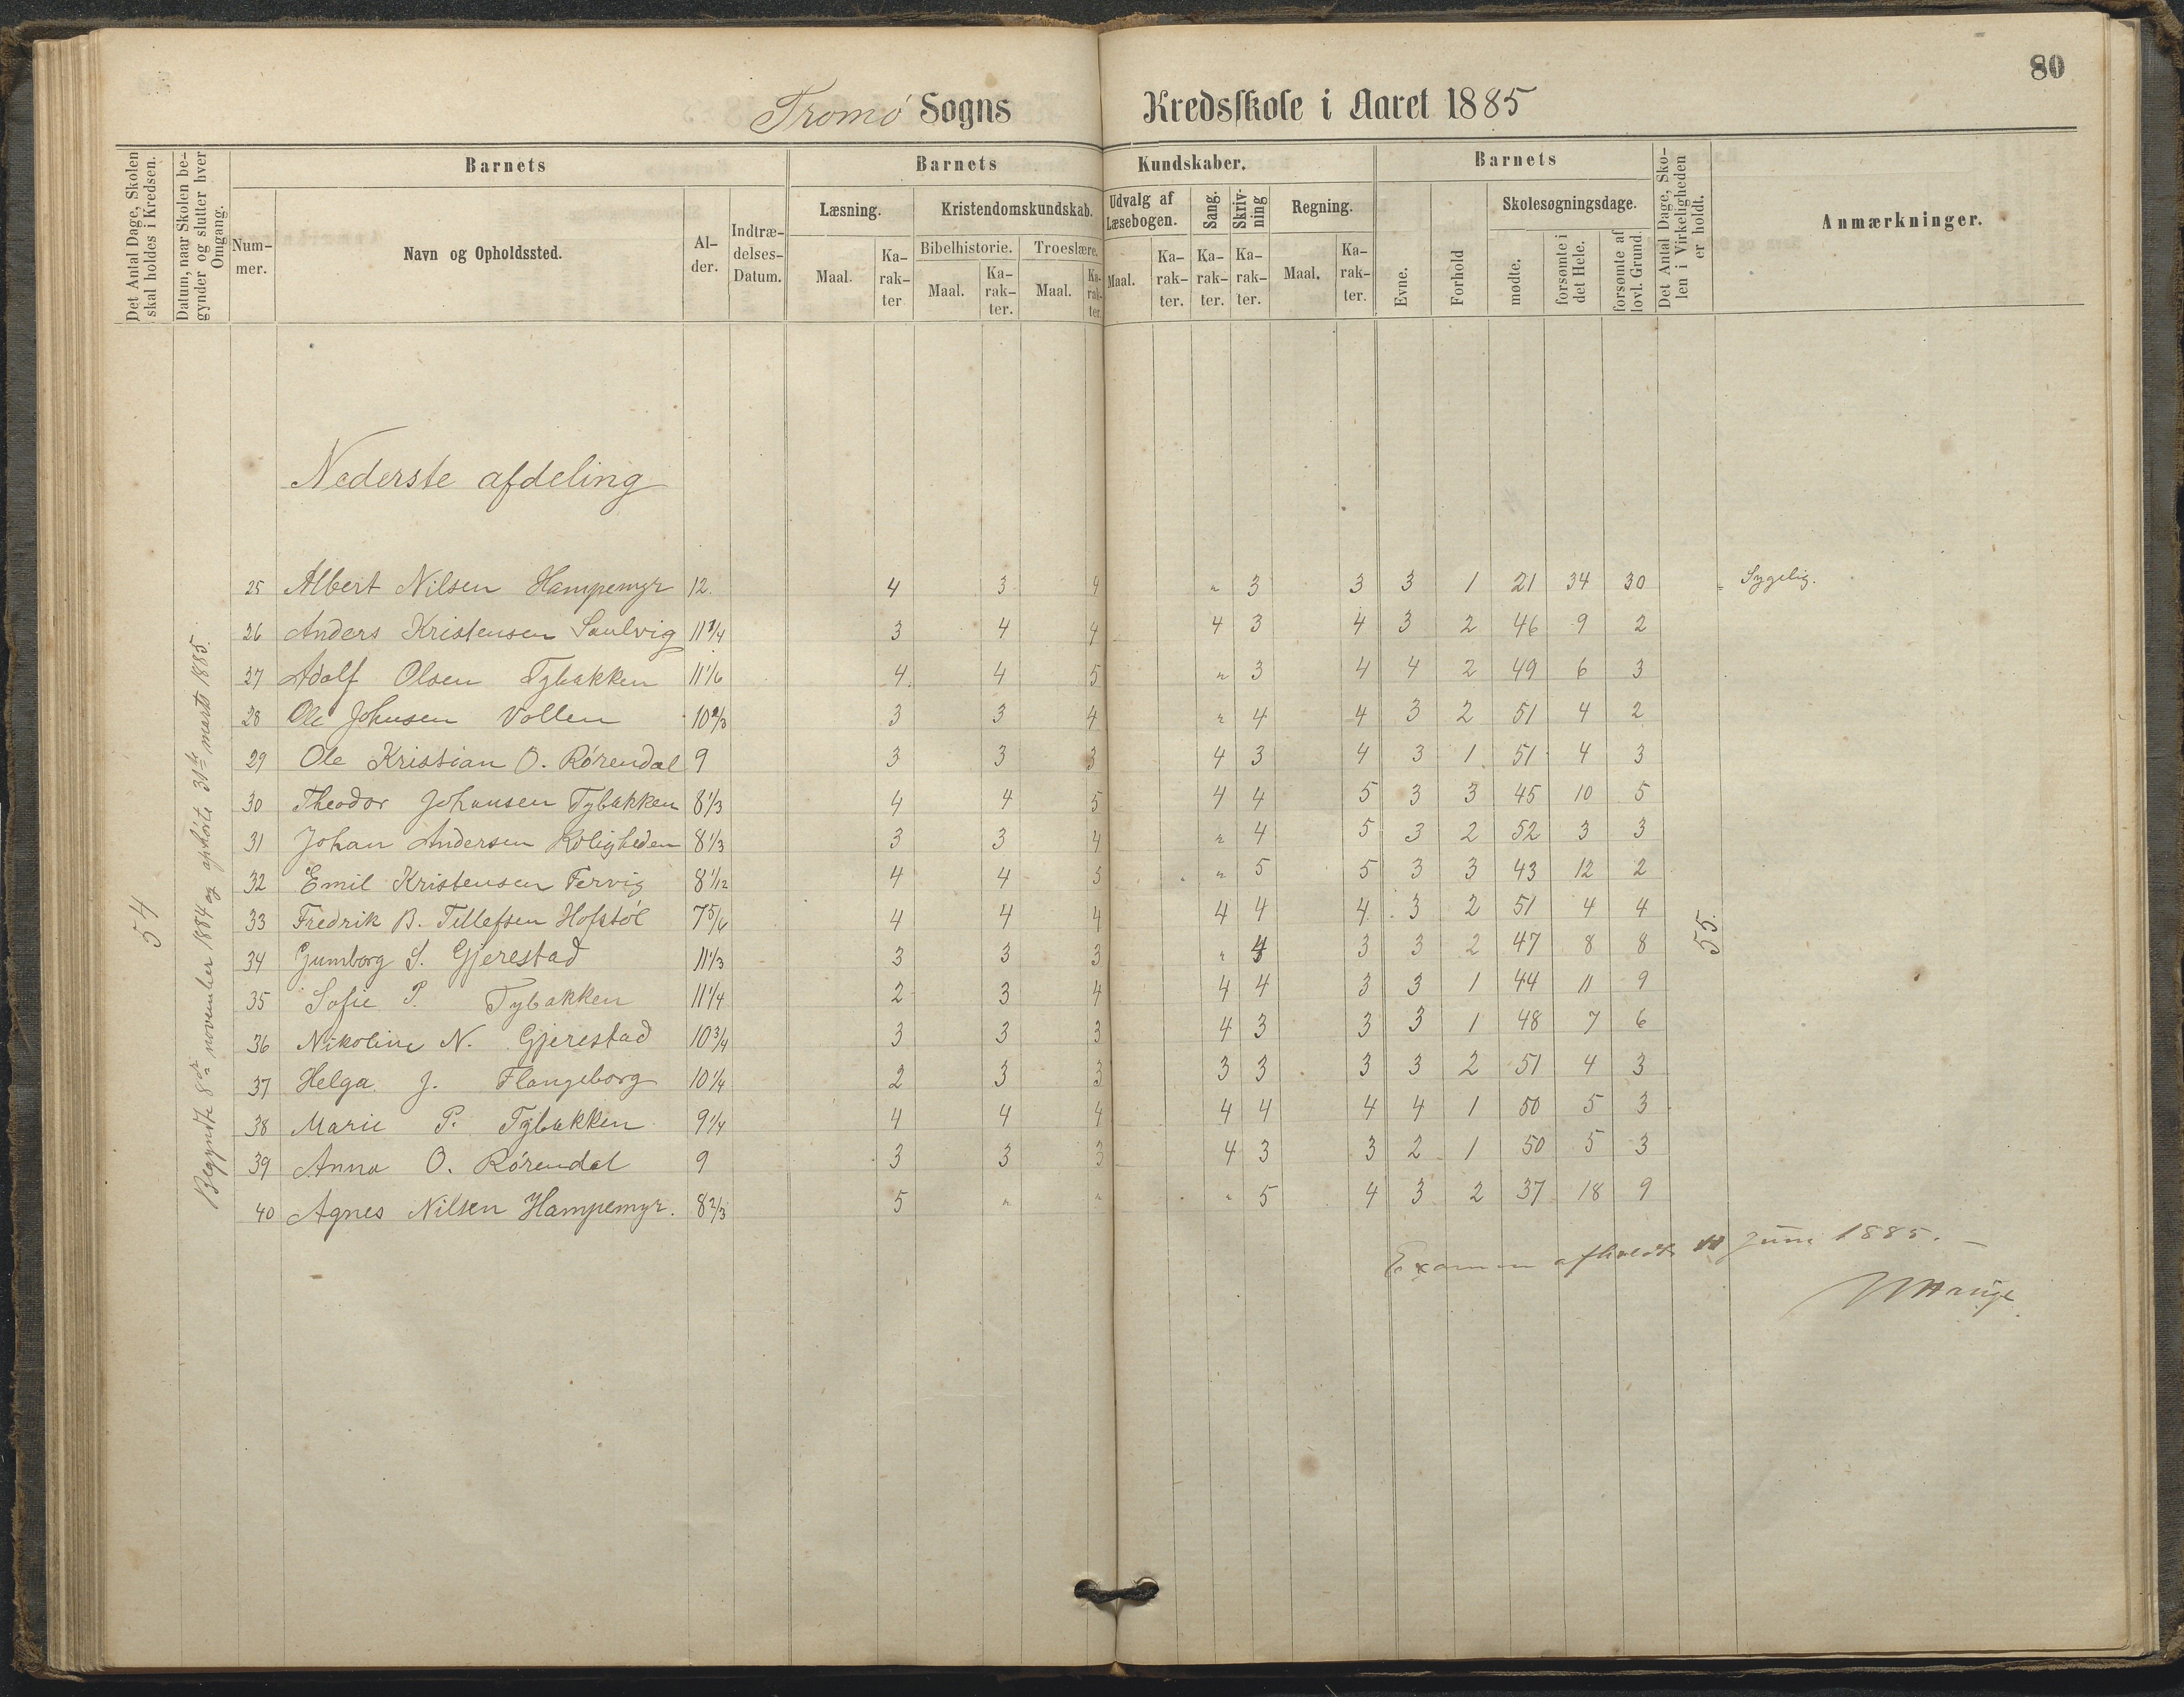 80
Tromö Sogns Kredsskole i Aaret 1885
Det Antal Dage, Skolen skal holdes i Kredsen.
Datum, naar Skolen begynder og slutter hver Omgang.
Barnets
Nummer.
Navn og Opholdssted.
Alder.
Indtrædelses-Datum.
Barnets Kundskaber.
Læsning.
Maal.
Karakter
Kristendomskundskab.
Bibelhistorie.
Maal.
Karakter.
Troeslære.
Maal.
Karakter.
Udvalg af Læsebogen.
Maal.
Karakter.
Sang.
Karakter.
Skrivning
Karakter.
Regning.
Maal.
Karakter.
Barnets
Evne.
Forhold
Skolesøgningsdage.
mødte.
forsømte i det Hele.
forsømte af lovl. Grund.
Det Antal Dage, Skolen i Virkeligheden er holdt.
Anmærkninger.
54
Begyndte 8de november 1884 og ophörte 31te marts 1885.
Nederste afdeling
25 Albert Nilsen Hampemyr 12. 4 3 4 " 3 3 3 1 21 34 30 Sygelig.
26 Anders Kristensen Saulvig 11 3/4 3 4 4 4 3 4 3 2 46 9 2
27 Adolf Olsen Tybakken 11 1/6 4 4 5 " 3 4 4 2 49 6 3
28 Ole Johnsen Vollen 10 2/3 3 3 4 " 4 4 3 2 51 4 2
29 Ole Kristian O. Rörendal 9 3 3 3 4 3 4 3 1 51 4 3
30 Theodor Johansen Tybakken 8 1/3 4 4 5 4 4 5 3 3 45 10 5
31 Johan Andersen Roligheden 8 1/3 3 3 4 " 4 5 3 2 52 3 3
32 Emil Kristensen Tervig 8 1/12 4 4 5 " 5 5 3 3 43 12 2
33 Fredrik B. Tellefsen Hofstöl 7 5/6 4 4 4 4 4 4 3 2 51 4 4
34 Gumborg S. Gjerestad 11 1/3 3 3 3 " 4 3 3 2 47 8 8
35 Sofie P. Tybakken 11 1/4 2 3 4 4 4 3 3 1 44 11 9
36 Nikoline N. Gjerestad 10 3/4 3 3 3 4 3 3 3 1 48 7 6
37 Helga J. Flangeborg 10 1/4 2 3 3 3 3 3 3 2 51 4 3
38 Marie P. Tybakken 9 1/4 4 4 4 4 4 4 4 1 50 5 3
39 Anna O. Rörendal 9 3 3 3 4 3 3 2 1 50 5 3
40 Agnes Nilsen Hampemyr. 8 2/3 5 " " " 5 4 3 2 37 18 9
55.
Examen afholdt 11 Juni 1885.